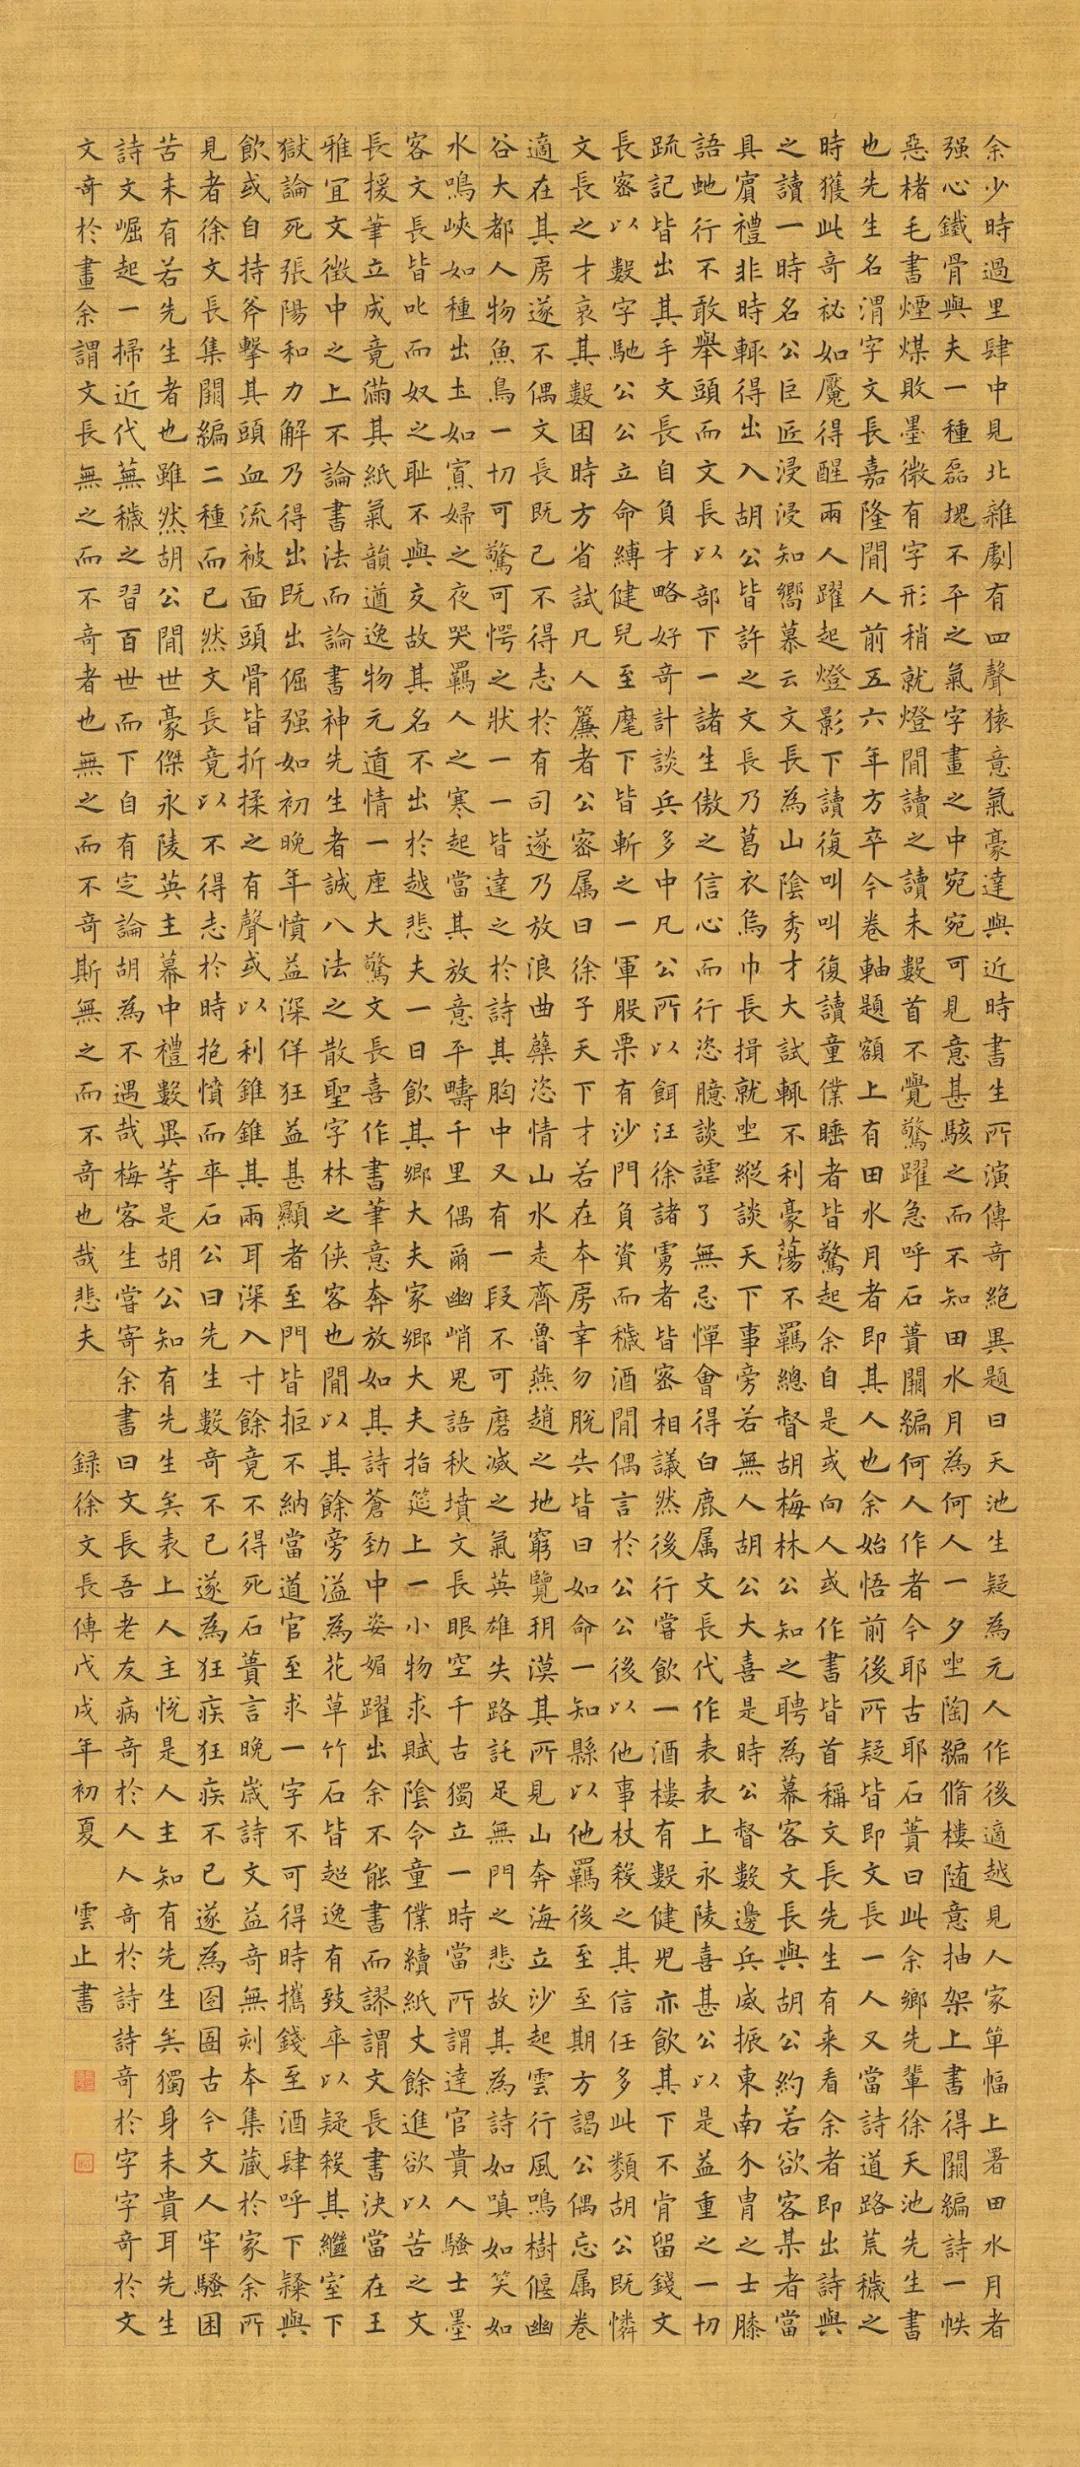 余少時過里肆中見北雜劇有四聲猿意氣豪達與近時書生所演傳奇絕異題曰天池生疑為元人作後適越見人家單幅上署田水月者
强心鐵骨與夫一種磊塊不平之氣字畫之中宛宛可見意甚駭之而不知田水月為何人一夕坐陶編脩樓随意抽架上書得闕編詩一帙
惡楮毛書煙煤敗墨微有字形稍就燈閒讀之讀未數首不覺驚躍急呼石蕢闕編何人作者今耶古耶石蕢曰此余鄉先輩徐天池先生書
也先生名渭字文長嘉隆閒人前五六年方卒今卷軸題額上有田水月者即其人也余始悟前後所疑皆即文長一人又當詩道路荒穢之
時獲此奇祕如魘得醒兩人躍起燈影下讀復叫叫復讀童僕睡者皆驚起余自是或向人或作書皆首稱文長先生有来看余者即出詩與
之讀一時名公巨匠浸浸知嚮慕云文長為山陰秀才大試輒不利豪蕩不羈總督胡梅林公知之聘為幕客文長與胡公約若欲客某者當
具賓禮非時輒得出入胡公皆許之文長乃葛衣烏巾長揖就坐縱談天下事旁若無人胡公大喜是時公督數邊兵威振東南介胄之士膝
語虵行不敢舉頭而文長以部下一諸生傲之信心而行恣臆談謔了無忌憚會得白鹿属文長代作表表上永陵喜甚公以是益重之一切
疏記皆出其手文長自負才略好奇計談兵多中凡公所以餌汪徐諸虜者皆密相議然後行嘗飲一酒樓有數健児亦飲其下不肯留錢文
長密以數字馳公公立命縛健兒至麾下皆斬之一軍股栗有沙門負資而穢酒閒偶言於公公後以他事杖殺之其信任多此類胡公既憐
文長之才哀其數困時方省試凡人簾者公密属曰徐子天下才若在本房幸勿脫失皆曰如命一知縣以他羈後至至期方謁公偶忘属卷
適在其房遂不偶文長既已不得志於有司遂乃放浪曲蘖恣情山水走齊魯燕趙之地窮覽朔漠其所見山奔海立沙起雲行風鳴樹偃幽
谷大都人物魚鳥一切可驚可愕之狀一一皆達之於詩其胸中又有一段不可磨滅之氣英雄失路託足無門之悲故其為詩如嗔如笑如
水鳴峽如種出土如寡婦之夜哭羈人之寒起當其放意平疇千里偶爾幽峭鬼語秋墳文長眼空千古獨立一時當所謂達官貴人騷士墨
客文長皆叱而奴之耻不與交故其名不出於越悲夫一日飲其鄉大夫家鄉大夫指筵上一小物求賦陰令童僕續紙丈餘進欲以苦之文
長援筆立成竟滿其紙氣韻遒逸物元遁情一座大驚文長喜作書筆意奔放如其詩蒼勁中姿媚躍出余不能書而謬謂文長書決當在王
雅宜文徵中之上不論書法而論書神先生者誠八法之散聖字林之侠客也閒以其餘旁溢為花草竹石皆超逸有致卒以疑殺其繼室下
獄論死張陽和力解乃得出既出倔强如初晚年憤益深佯狂益甚顯者至門皆拒不納當道官至求一字不可得時攜錢至酒肆呼下隸與
飲或自持斧擊其頭血流被面頭骨皆折揉之有聲或以利錐錐其兩耳深入寸餘竟不得死石蕢言晚歲詩文益奇無刻本集藏於家余所
見者徐文長集闕編二種而已然文長竟以不得志於時抱憤而卒石公曰先生數奇不已遂為狂疾狂疾不已遂為囹圄古今文人牢騷困
苦未有若先生者也雖然胡公閒世豪傑永陵英主幕中禮數異等是胡公知有先生矣表上人主悅是人主知有先生矣獨身未貴耳先生
詩文崛起一掃近代蕪穢之習百世而下自有定論胡為不遇哉梅客生嘗寄余書曰文長吾老友病奇於人人奇於詩詩奇於字字奇於文
文奇於畫余謂文長無之而不奇者也無之而不奇斯無之而不奇也哉悲夫 録徐文長傳戊戌年初夏 雲止書